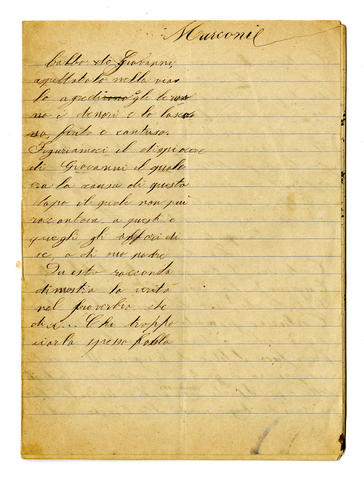 Marconi
babbo di Giovanni
appettatolo nella via
lo aggredirono gli
no i denari e lo lascia
ferito e contuso.
Figuriamoci il dispiacere
di Giovanni il quale
era la causa di questo
il quale non piu
raccontava a questi e
quegli gli affari di
se, o di suo padre
Questo racconto
dimostra la verita
nel proverbio che
dice... Chi troppo
ciarla spesso falla